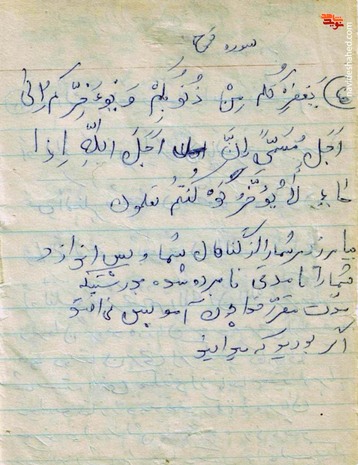 سوره نوح
يَغفِرْ لَكُم مِنْ ذُنُوبِكُمْ وَ يُؤَخِّرْكُمْ اِلىٰ
اَجَلٍ مُسَمًّى اِنَّ اَجَلَ اللّهِ اِذا
جاءَ لا يُؤَخَّرُ لَوْ كُنْتُمْ تعلمون
بیامرزد شما را از گناهان شما و پس اندازد
شما را تا مدتی نامبرده شده بدرستیکه
مدت مقرر خدا چون آمد پس نیافتد
اگر بودید که میدانید